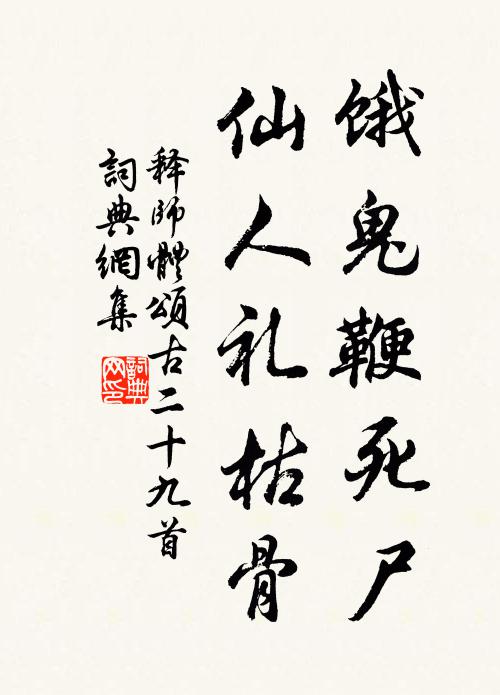 饿鬼鞭死尸
仙人礼枯骨
释师體頌古二十九首
詞典網集
詞典网印